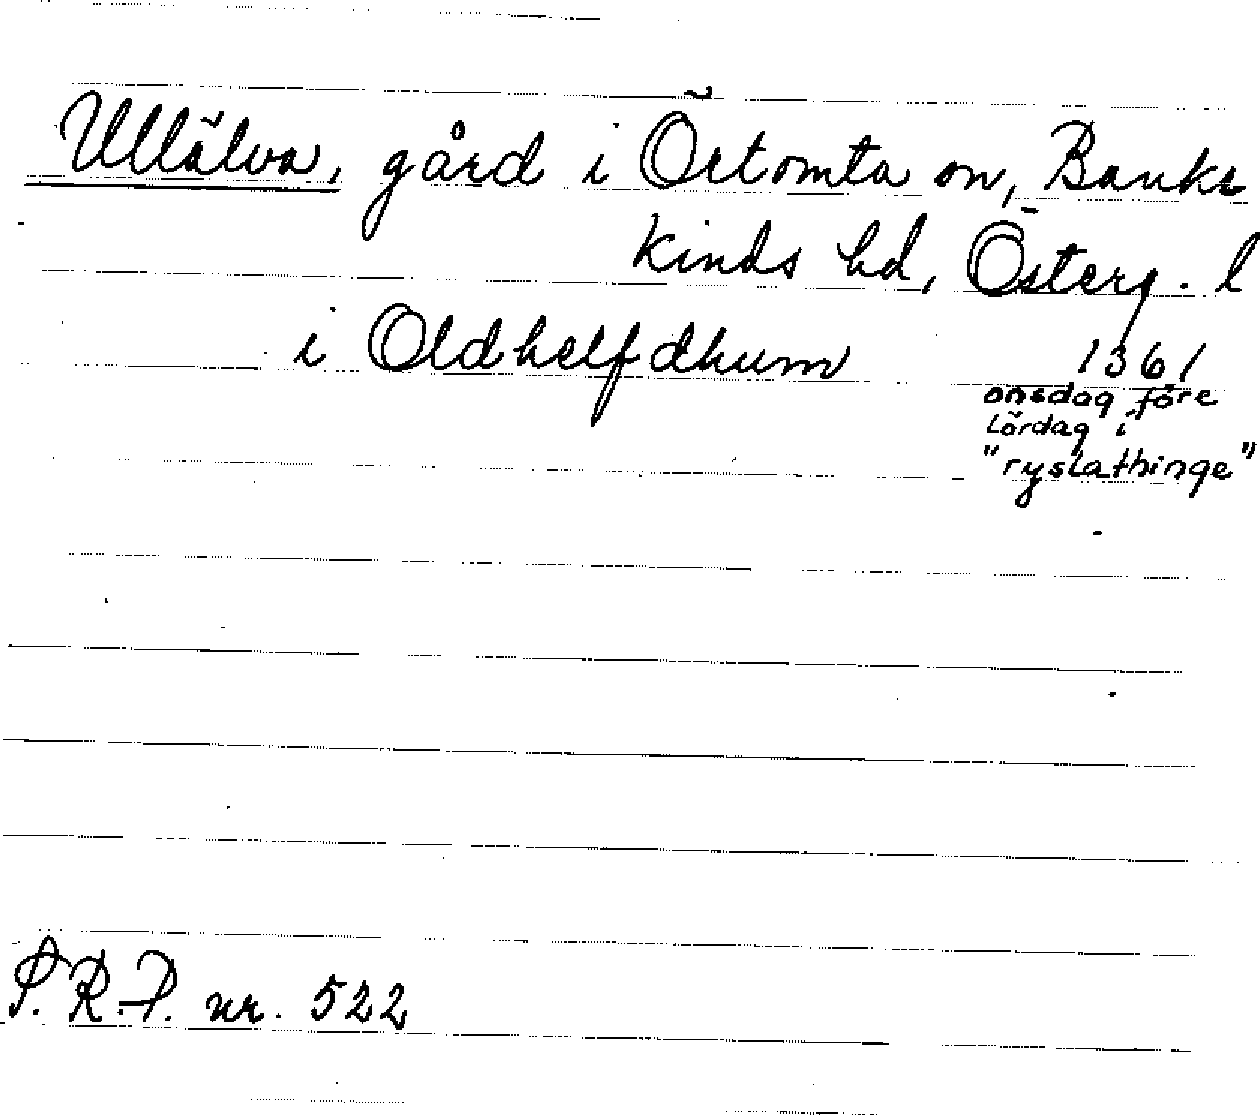 Ullälva, gård i Örtomta sn, Banke
kinds hd, Österg. l
i Oldhelfdhum 1361
onsdag före
lördag i
"ryslathinge"
S.R.P. nr. 522